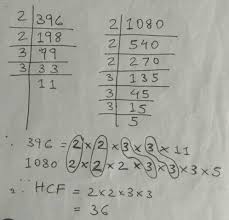 2 | 396
2 | 198
3 | 99
3 | 33
11
2 | 1080
2 | 540
2 | 270
3 | 135
3 | 45
3 | 15
5
∴ 396 = 2 × 2 × 3 × 3 × 11
1080 = 2 × 2 × 2 × 3 × 3 × 3 × 5
∴ HCF = 2 × 2 × 3 × 3
= 36